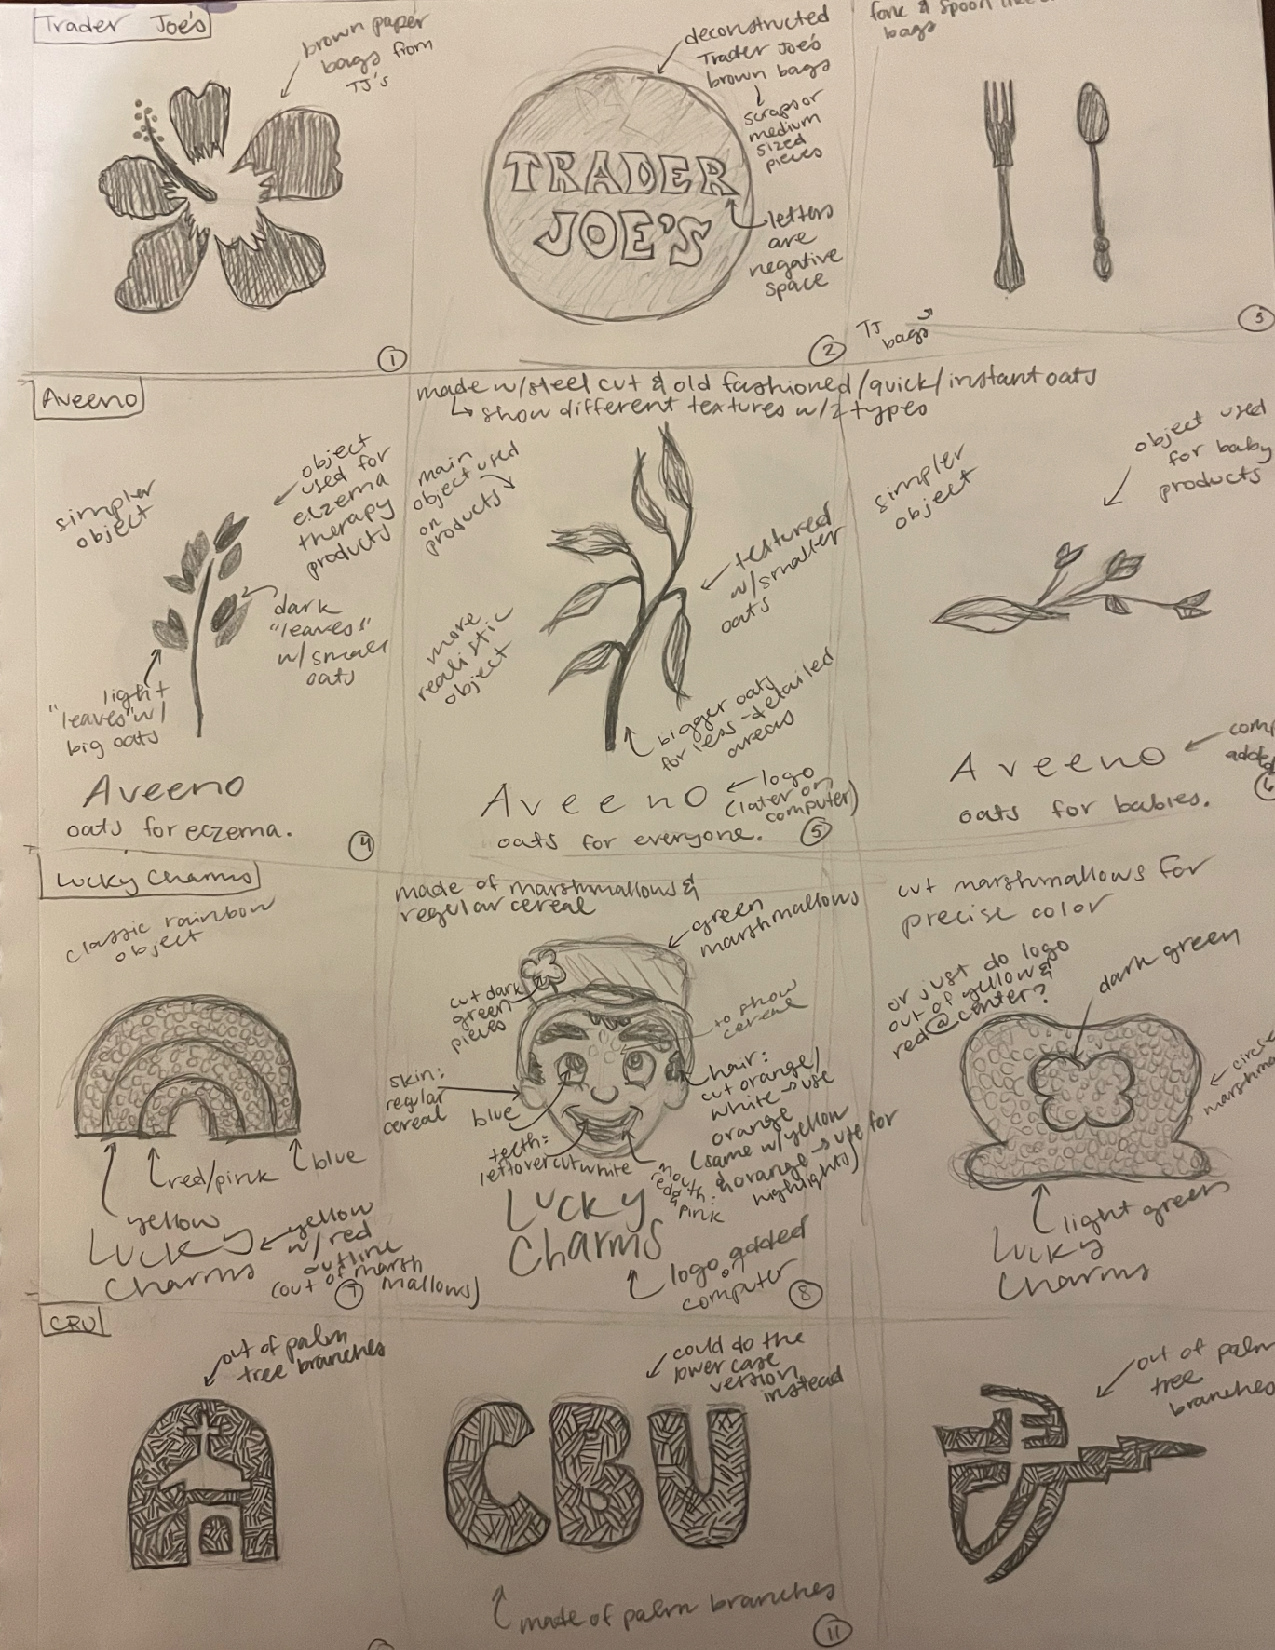 Trader Joe's
brown paper
bags from
TJ's
①
deconstructed
Trader Joe's
brown bags
scraps or
medium
sized
pieces
TRADER
JOE'S
letters
are
negative
space
②
fork & spoon
bags
TJ
bags
3
Aveeno
made w/steel cut & old fashioned/quick/instant oats
show different textures w/2 types
simpler
object
object
used for
eczema
therapy
products
dark
"leaves"
w/small
oats
light
"leaves" w/
big oats
Aveeno
oats for eczema.
④
main
object used
on
products
more
realistic
object
textured
w/smaller
oats
bigger oats
for less-detailed
areas
Aveeno
logo
(later on
computer)
oats for everyone.
⑤
simpler
object
object used
for baby
products
Aveeno
added
oats for babies.
6
Lucky Charms
classic rainbow
object
yellow
red/pink
blue
Lucky
Charms
yellow
w/red
outline
(out of marsh
mallows)
⑦
made of marshmallows &
regular cereal
green
marshmallows
cut dark
green
pieces
to show
cereal
skin:
regular
cereal
blue
teeth=
leftover cut white
hair:
cut orange/
white → use
orange
(same w/yellow
& orange → use for
highlights)
mouth:
red &
pink
Lucky
Charms
logo added
on
computer
⑧
cut marshmallows for
precise color
or just do logo
out of yellow &
red @ center?
dark green
light green
Lucky
Charms
CBU
out of palm
tree branches
could do the
lower case
version
instead
CBU
made of palm branches
⑪
out of palm
tree
branches